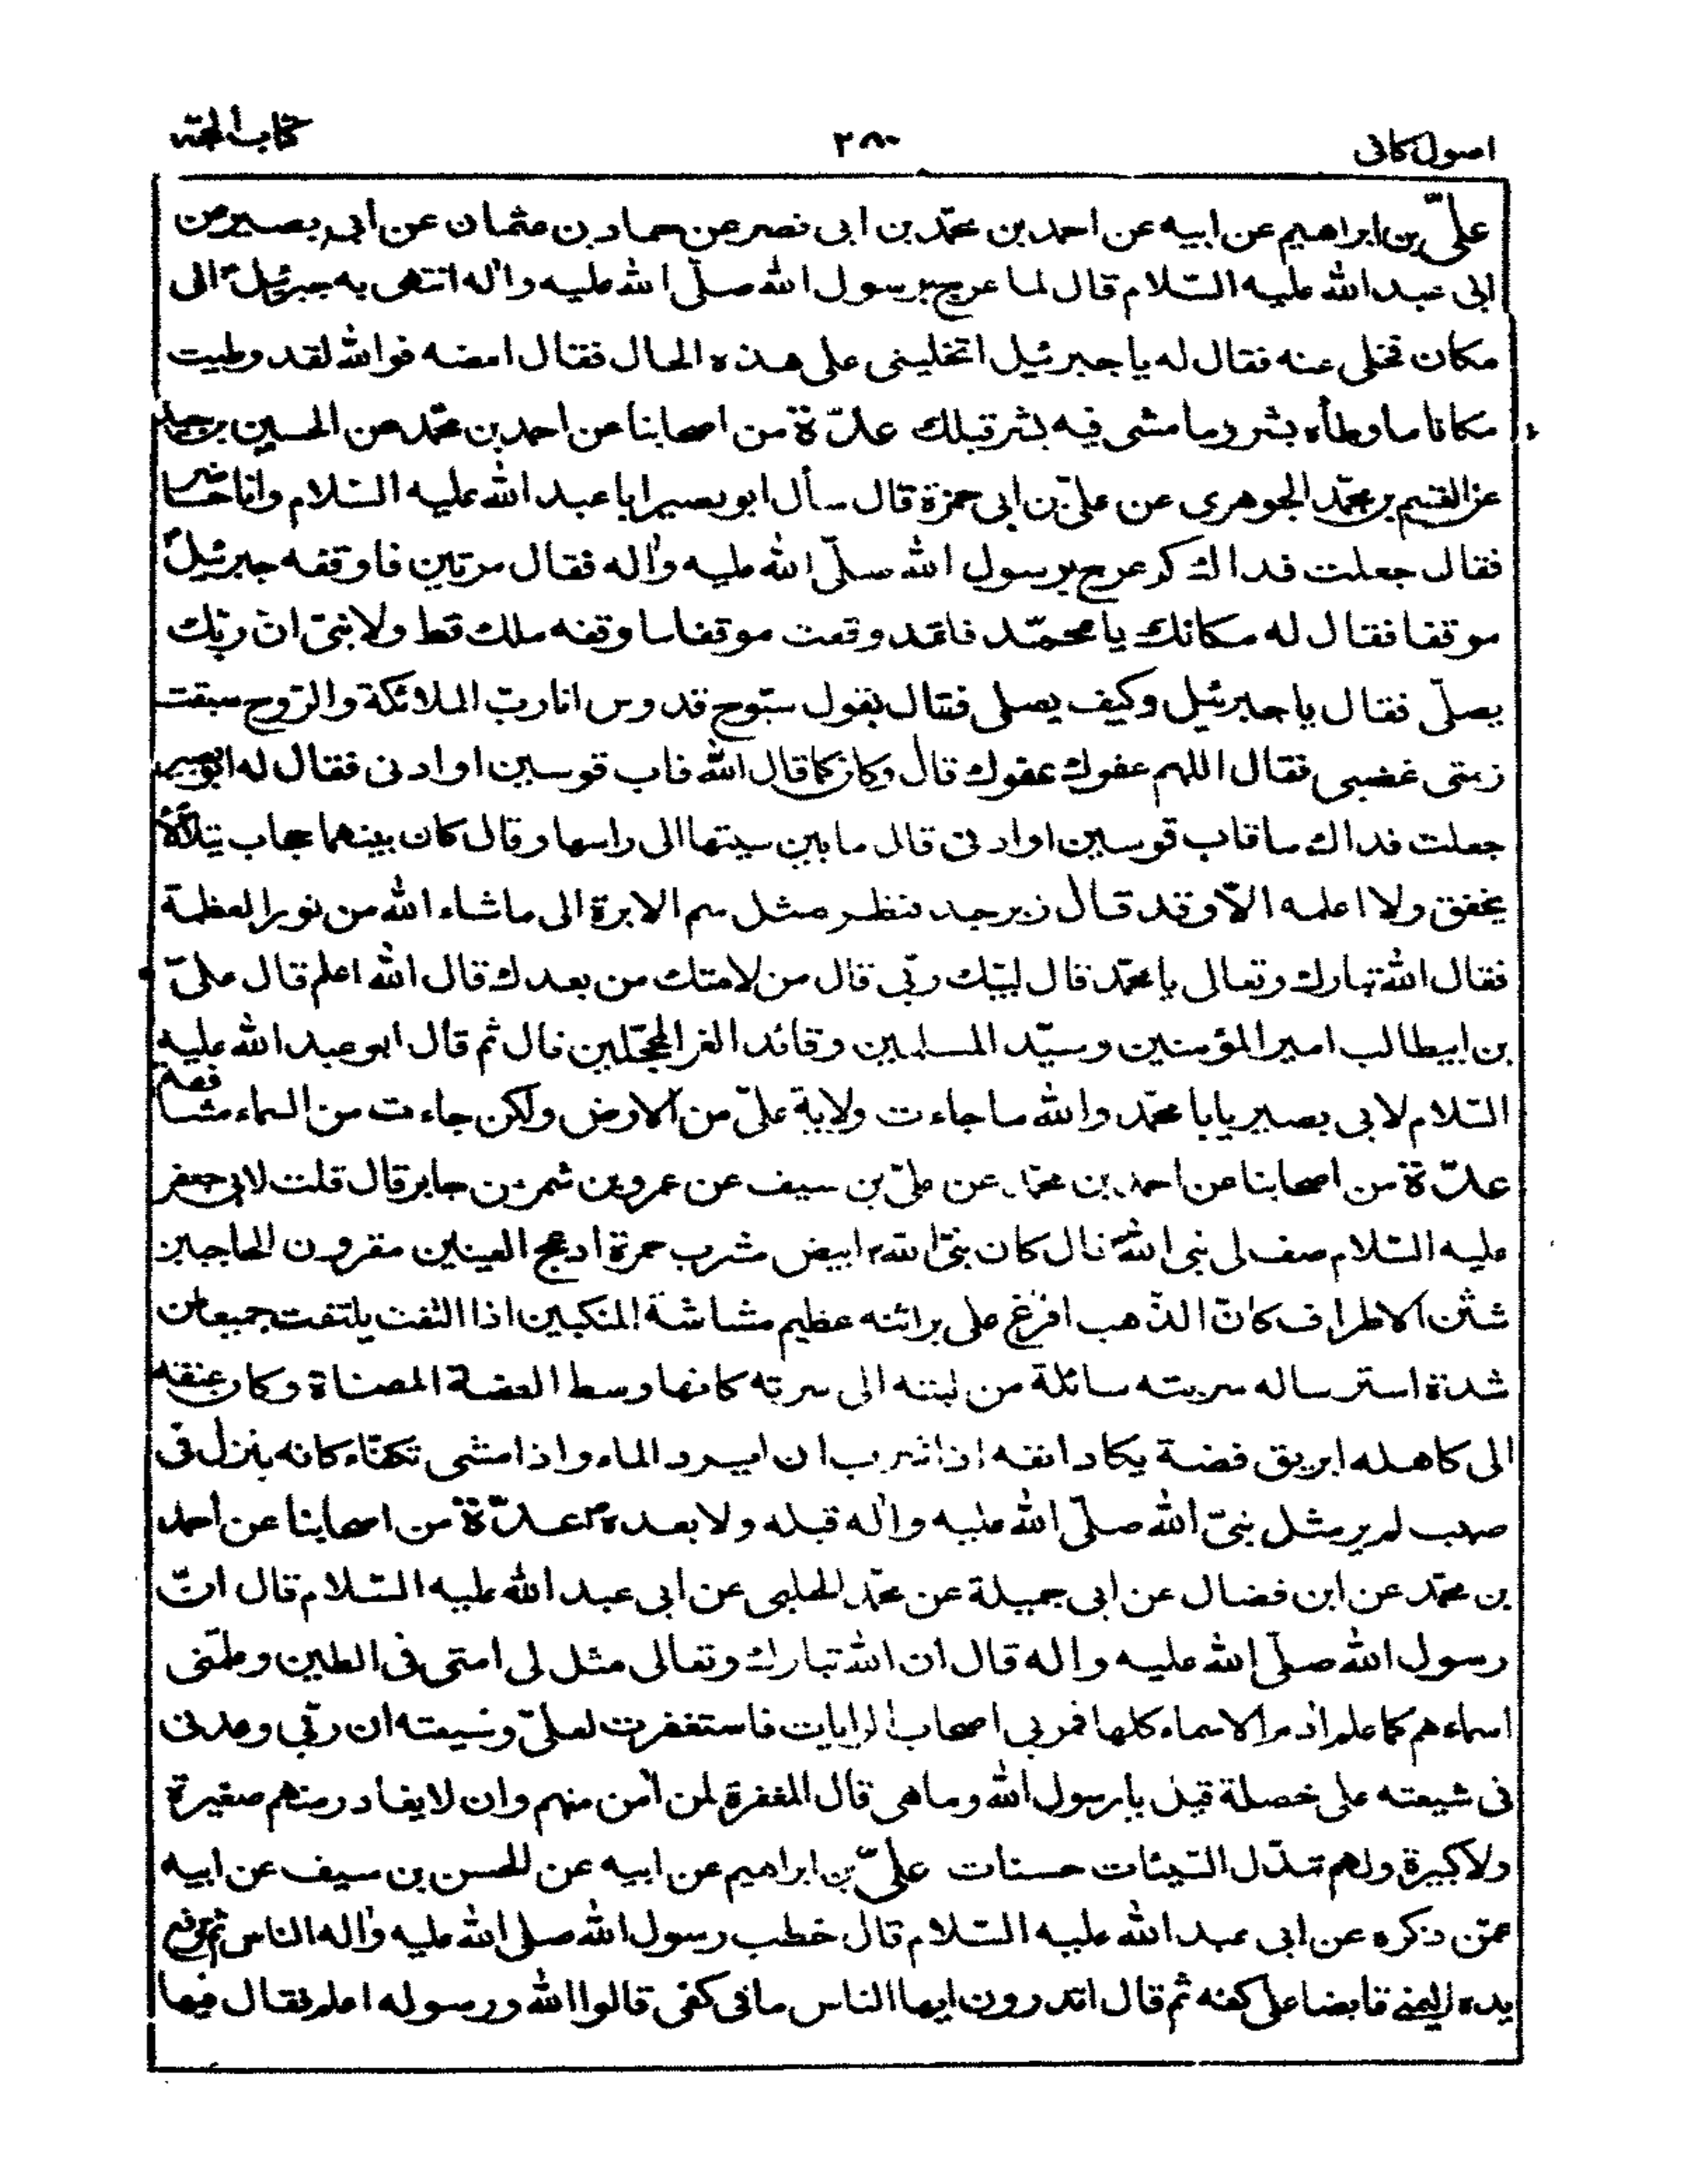 اصول كافى ٢٨٠ كتاب الحجة
علىّ بن ابراهيم عن ابيه عن احمد بن محمّد بن ابى نصر عن حماد بن عثمان عن أبى بصير عن
ابى عبد الله عليه السّلام قال لما عرج برسول الله صلّى الله عليه واٰله انتهى به جبرئيلؑ الى
مكان فخلى عنه فقال له يا جبرئيل اتخلينى على هذه الحال فقال امضه فوالله لقد وطيت
مكانا ما وطأه بشر وما مشى فيه بشر قبلك عدّة من اصحابنا عن احمد بن محمّد عن الحسين بن سعيد
عن القسم بن محمّد الجوهرى عن علىّ بن ابى حمزة قال سأل ابو بصير ابا عبد الله عليه السّلام وانا حاضر
فقال جعلت فداك كم عرج برسول الله صلّى الله عليه واٰله فقال مرتين فاوقفه جبرئيلؑ
موقفا فقال له مكانك يا محمّد فلقد وقفت موقفا ما وقفه ملك قط ولا نبىّ ان ربّك
يصلّى فقال يا جبرئيل وكيف يصلى فقال يقول سبّوح قدوس انا ربّ الملائكة والرّوح سبقت
رحمتى غضبى فقال اللهم عفوك عفوك قال وكان كما قال الله قاب قوسين او ادنى فقال له ابو بصير
جعلت فداك ما قاب قوسين او ادنى قال ما بين سيتها الى راسها وقال كان بينهما حجاب يتلألأ
يخفق ولا اعلمه الاّ وقد قال زبرجد فنظر مثل سم الابرة الى ما شاء الله من نور العظمة
فقال الله تبارك وتعالى يا محمّد قال لبيّك ربّى قال من لامتك من بعدك قال الله اعلم قال علىّ
بن ابيطالب امير المؤمنين وسيّد المسلمين وقائد الغر المحجّلين قال ثم قال ابو عبد الله عليه
السّلام لابى بصير يابا محمّد والله ما جاءت ولاية علىّ من الارض ولكن جاءت من السماء مشافهة
عدّة من اصحابنا عن احمد بن محمّد عن علىّ بن سيف عن عمرو بن شمر عن جابر قال قلت لابى جعفر
عليه السّلام صف لى نبى اللهؐ قال كان نبىّ اللهؐ ابيض مشرب حمرة ادعج العينين مقرون الحاجبين
شثن الاطراف كانّ الذّهب افرغ على براثنه عظيم مشاشة المنكبين اذا التفت يلتفت جميعا من
شدة استرساله سربته سائلة من لبته الى سرته كانها وسط الفضة المصفاة وكان عنقه
الى كاهله ابريق فضة يكاد انفه اذا شرب ان يرد الماء واذا مشى تكفّاء كانه ينزل فى
صبب لم ير مثل نبىّ الله صلّى الله عليه واٰله قبله ولا بعدهؐ عدّة من اصحابنا عن أحمد
بن محمّد عن ابن فضال عن ابى جميلة عن محمّد الحلبى عن ابى عبد الله عليه السّلام قال انّ
رسول الله صلّى الله عليه واله قال ان الله تبارك وتعالى مثل لى امتى فى الطين وعلّمنى
اسماءهم كما علم اٰدم الاسماء كلها فمر بى اصحاب الرايات فاستغفرت لعلىّ وشيعته ان ربّى وعدنى
فى شيعته على خصلة قيل يا رسول الله وما هى قال المغفرة لمن اٰمن منهم وان لا يغادر منهم صغيرة
ولا كبيرة ولهم تبدّل السّيئات حسنات علىّ بن ابراهيم عن ابيه عن الحسن بن سيف عن ابيه
عمّن ذكره عن ابى عبد الله عليه السّلام قال خطب رسول الله صلى الله عليه واٰله الناس ثم رفع
يده اليمنى قابضا على كفه ثم قال اتدرون ايها الناس ما فى كفى قالوا الله ورسوله اعلم فقال فيها